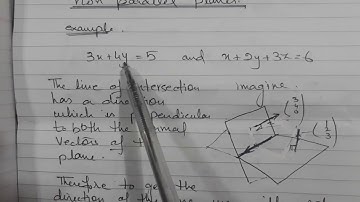 Non parallel planes.
example.
3x+4y=5 and x+2y+3x=6
The line of intersection
has a direction
which is perpendicular
to both the normal
vectors of
plane.
imagine.
(3 4 0)
(1 2 3)
n
n
Therefore to get the
direction of